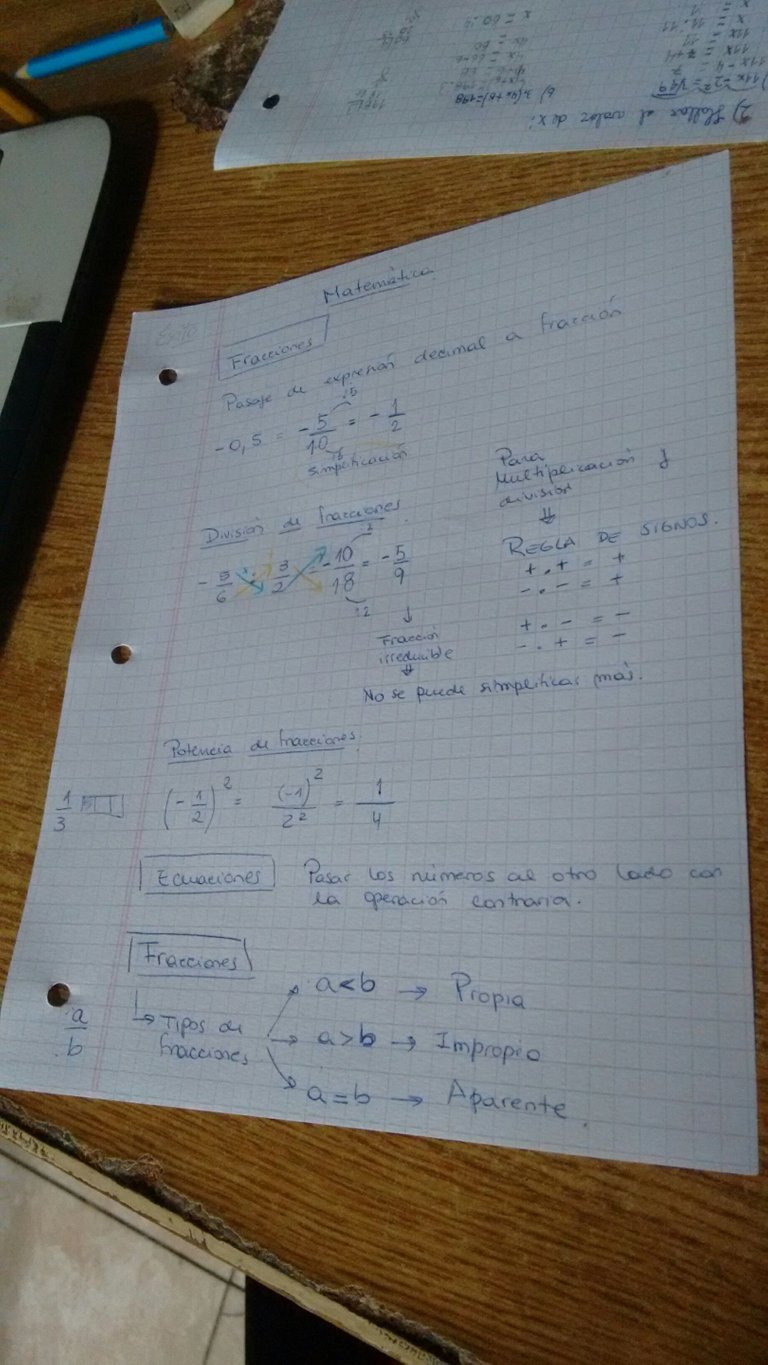 Matemática
Fracciones
Pasaje de expresión decimal a fracción
:5
-0,5 = -5/10 = -1/2
:5
simplificación
Para
Multiplicación y
división
⇓
REGLA DE SIGNOS.
+ . + = +
- . - = +
+ . - = -
- . + = -
División de fracciones
:2
- 5/6 : 3/2 = -10/18 = -5/9
:2
↓
Fracción
irreducible
⇓
No se puede simplificar más.
Potencia de fracciones.
1/3
(-1/2)² = (-1)²/2² = 1/4
Ecuaciones
Pasar los números al otro lado con
la operación contraria.
Fracciones
a/b
↳ Tipos de
fracciones
a<b → Propia
a>b → Impropia
a=b → Aparente.
2) Hallar el valor de x:
11x - 2² = √49
11x - 4 = 7
11x = 7+4
11x = 11
b) 3.(4x+6)=198